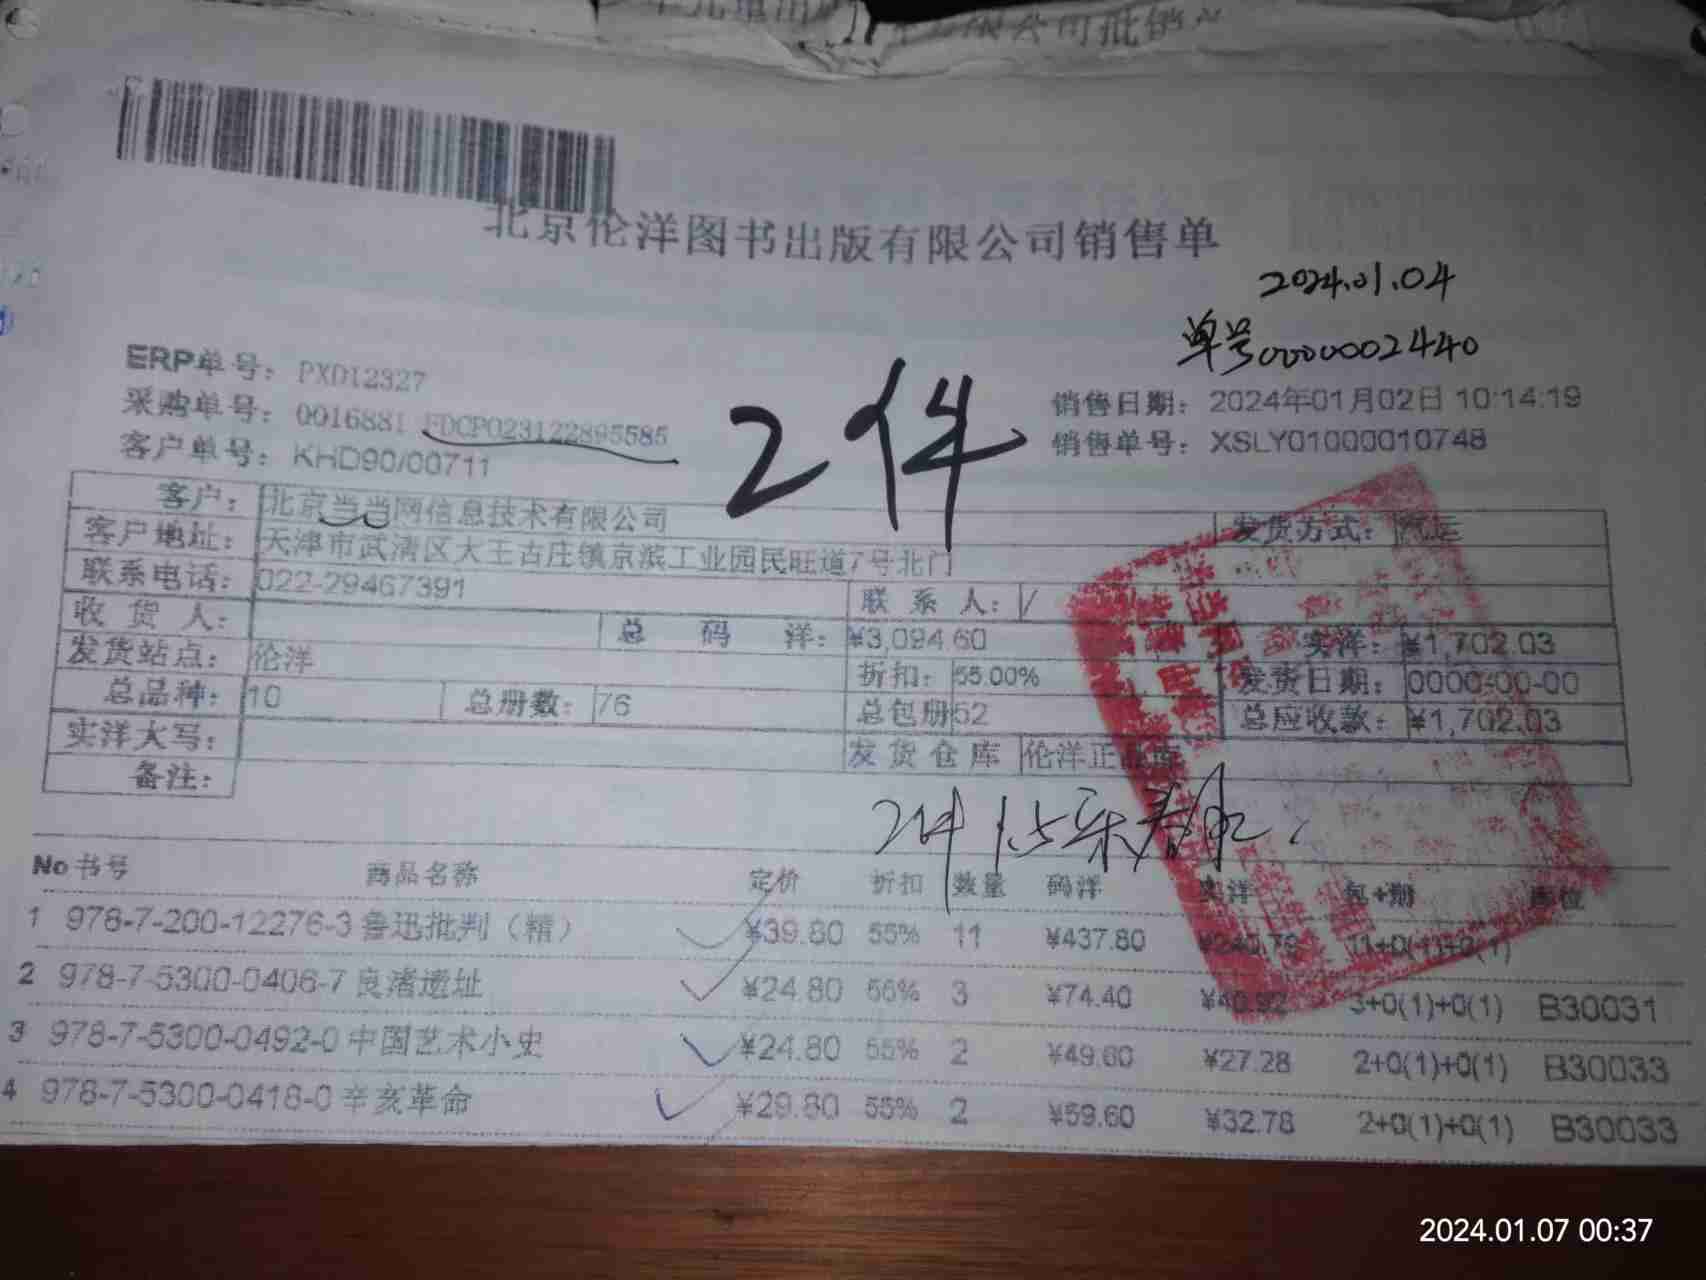 北京伦洋图书出版有限公司销售单
2024.01.04
单号0000002440
ERP单号: PXD12327
采购单号: 0016881 FDCP023122895585
2件
销售日期: 2024年01月02日 10:14:19
客户单号: KHD90/00711
销售单号: XSLY01000010748
客户: 北京当当网信息技术有限公司 发货方式: 汽运
客户地址: 天津市武清区大王古庄镇京滨工业园民旺道7号北门
联系电话: 022-29467391 联系人: /
收货人: 总码洋: ¥3,094.60 实洋: ¥1,702.03
发货站点: 伦洋 折扣: 55.00% 发货日期: 0000-00-00
总品种: 10 总册数: 76 总包册 52 总应收款: ¥1,702.03
实洋大写: 发货仓库 伦洋正品库
备注:
2件
No 书号 商品名称 定价 折扣 数量 码洋 实洋 包+册 库位
1 978-7-200-12276-3 鲁迅批判（精） ¥39.80 55% 11 ¥437.80 ¥240.79 11+0(1)+0(1)
2 978-7-5300-0406-7 良渚遗址 ¥24.80 55% 3 ¥74.40 ¥40.92 3+0(1)+0(1) B30031
3 978-7-5300-0492-0 中国艺术小史 ¥24.80 55% 2 ¥49.60 ¥27.28 2+0(1)+0(1) B30033
4 978-7-5300-0418-0 辛亥革命 ¥29.80 55% 2 ¥59.60 ¥32.78 2+0(1)+0(1) B30033
2024.01.07 00:37